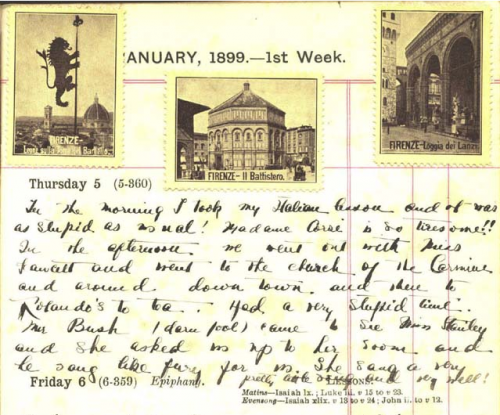 ANUARY, 1899.—1st Week.
FIRENZE—
FIRENZE – Il Battistero.
FIRENZE – Loggia dei Lanzi
Thursday 5 (5-360)
In the morning I took my Italian lesson and it was
as stupid as usual! Madame is so tiresome!!
In the afternoon we went out with Miss
and went to the church of the Carmine
and around down town and then to
to tea. Had a very stupid time.
Mr Bush (darn fool) came to see Miss Stanley
and she asked us up to her room and
he sang like fury for us. She sang a very
pretty and very well!
Friday 6 (6-359) Epiphany. LESSONS.
Matins—Isaiah lx.; Luke iii. v 15 to v 23.
Evensong—Isaiah xlix. v 13 to v 24; John ii. to v 12.